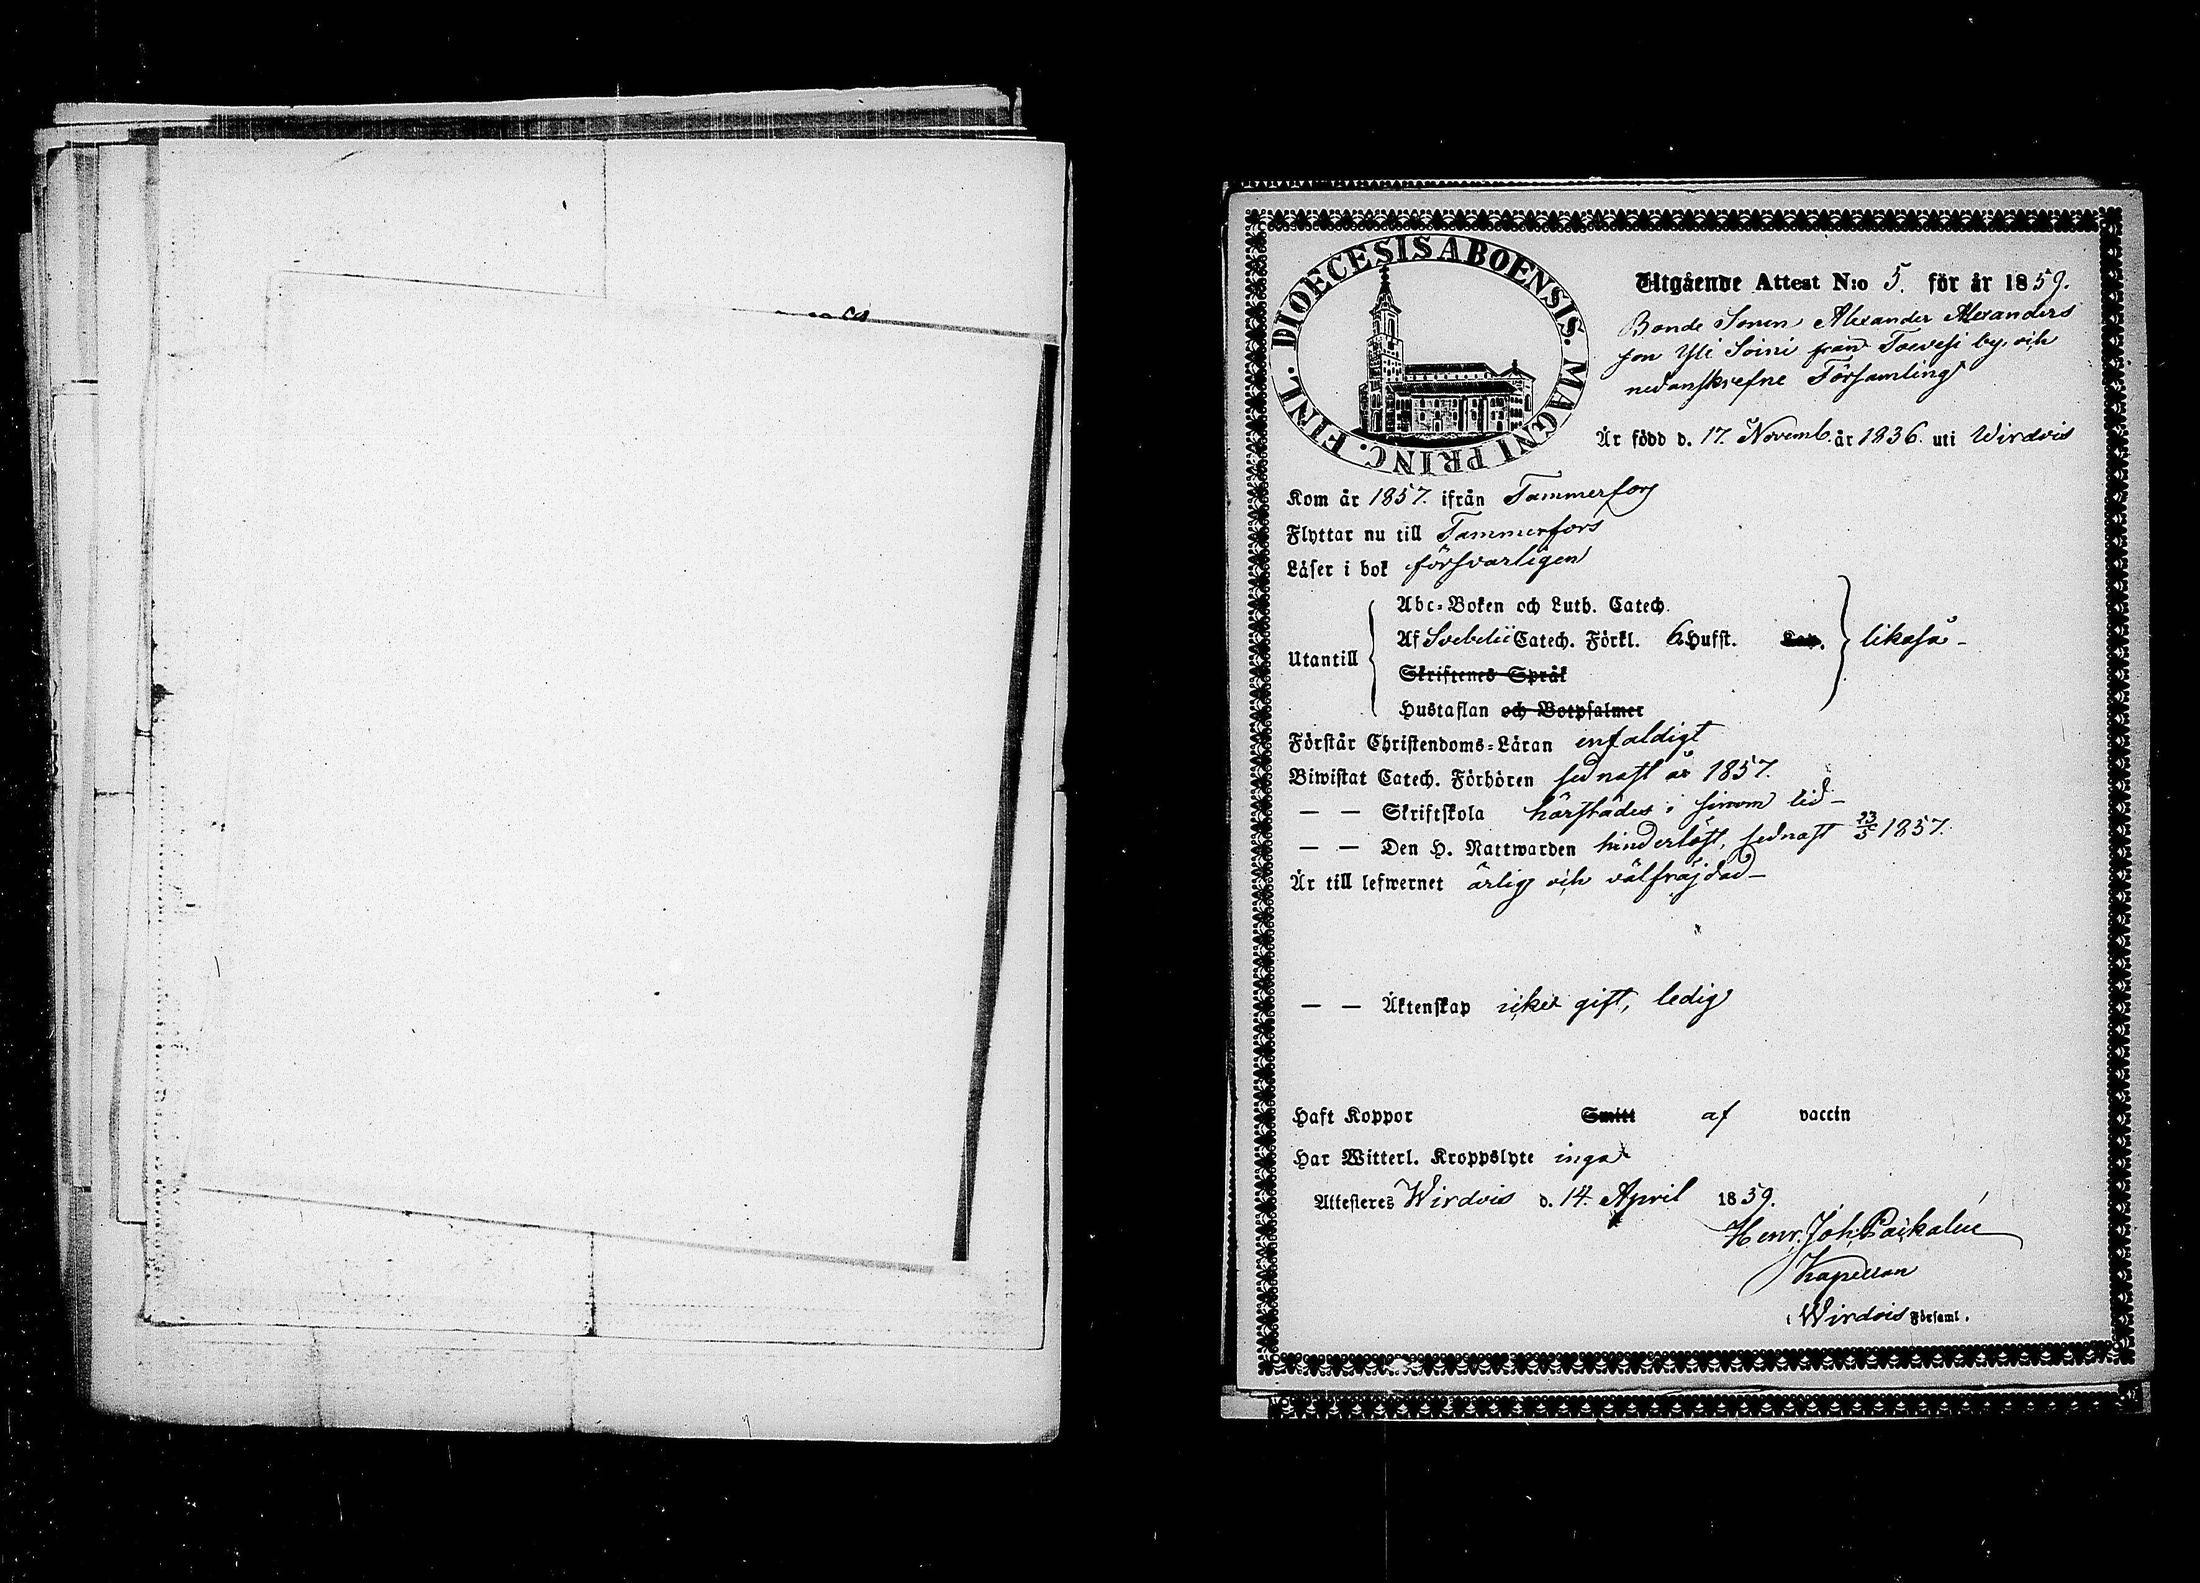 DIOECESIS ABOENSIS. MAGNI PRINC. FINL.
Utgående Attest N:o 5. för år 1859.
Bonde Sonen Alexander Alexanders
son Yli Soini från Toevesi by, och
nedanskrefne Församling
Är född d. 17. Novemb. år 1836. uti Wirdois
Kom år 1857. ifrån Tammerfors
Flyttar nu till Tammerfors
Läser i bok försvarligen
Abc-Boken och Luth. Catech.
Utantill Af Svebelii Catech. Förkl. 6 Hufst. Kap. likaså -
Skriftenes Språk
Hustaflan och Botpsalmer
Förstår Christendoms-Läran enfaldigt
Biwistat Catech. Förhören sednast år 1857.
— — Skriftskola härstädes i sinom tid -
— — Den H. Nattwarden hinderlöst, sednast 23/5 1857.
Är till lefwernet ärlig och välfräjdad -
— — Äktenskap icke gift, ledig
Haft Koppor Smitt af vaccin
Har Witterl. Kroppslyte inga
Attesteres Wirdois d. 14. April 1859.
Henr. Joh.
Kapellan
Wirdois Församl.